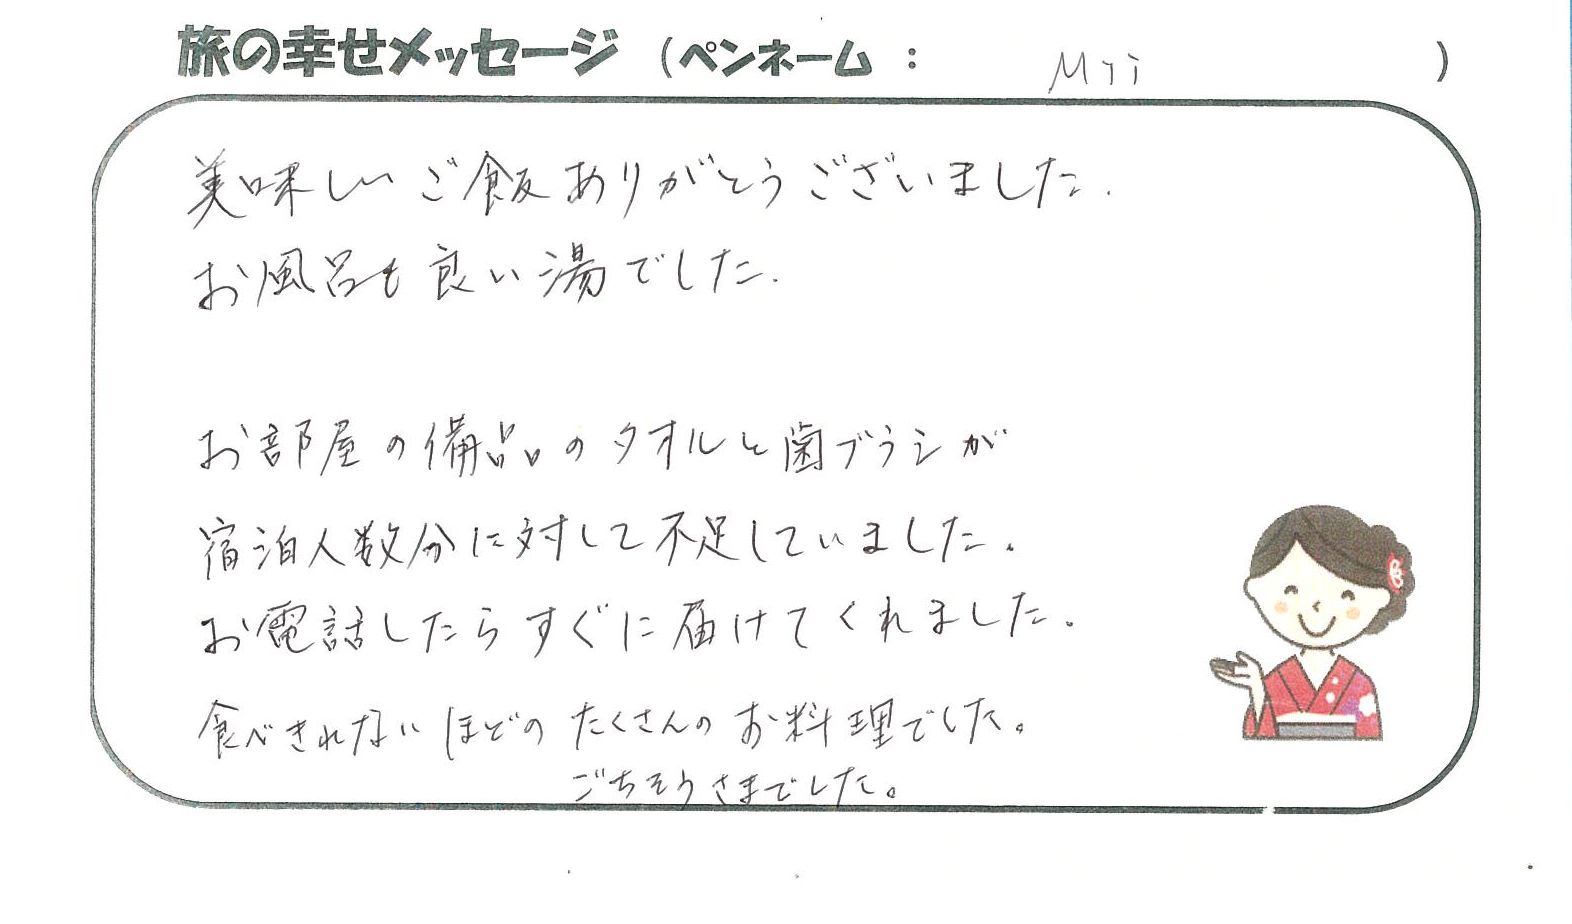 旅の幸せメッセージ (ペンネーム : )
美味しいご飯ありがとうございました.
お風呂も良い湯でした.
お部屋の備品のタオルと歯ブラシが
宿泊人数分に対して不足していました。
お電話したらすぐに届けてくれました。
食べきれないほどのたくさんのお料理でした。
ごちそうさまでした。